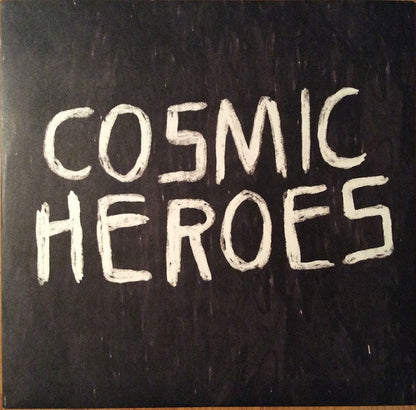 COSMIC
HEROES